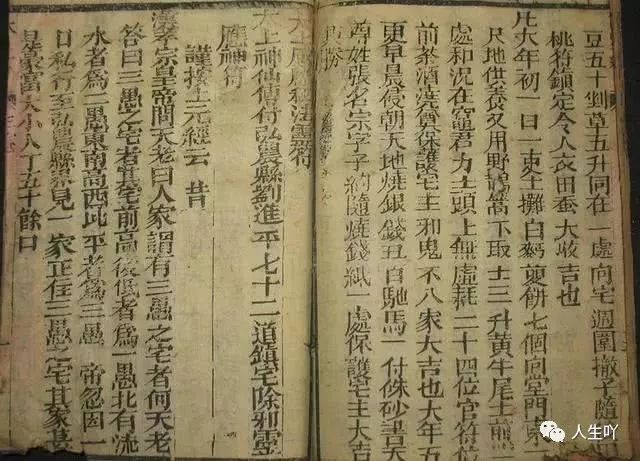 豆五十剉草五升同在一處向宅週圍撒子隨
桃符鎮定令人衣田蚕大收吉也
凡大年初一日一束土攤白餅七個向堂門
尺地供養又用野鵲窩下取土三升黃牛尾土煎
處和況在竈君力士頭上無虛耗二十四位官符位
前茶酒澆奠保護宅主邪鬼不入家大吉也大年五
更早晨侵朝天地燒銀錢五自馳馬一付侏砂書天
尊姓張名宗字子納隨燒錢紙一處保護宅主大吉
勝
法靈符
太上神仙傳符弘農縣劉進平七十二道鎮宅除邪霊
應神符
謹按上元經云昔
漢孝宗皇帝問天老曰人家謂有三愚之宅者何天老
答曰三愚之宅者其宅前高後低者爲一愚北有流
水者爲二愚東南高西北平者爲三愚帝忽因一
日私行至弘農縣界見一家正住三愚之宅其家甚
是豪富大小八丁五十餘口
人生吖